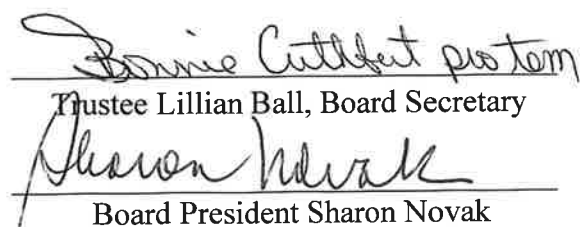 Bonnie Cuthbert pro tem
Trustee Lillian Ball, Board Secretary
Sharon Novak
Board President Sharon Novak